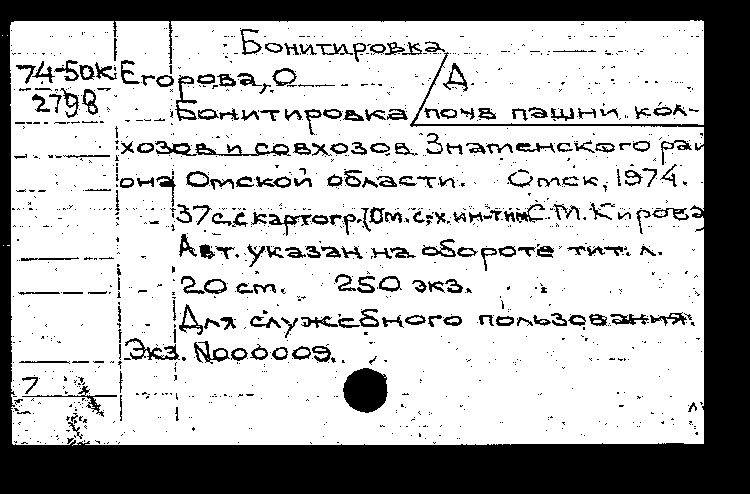 Бонитировка
74-50к Егорова, О Д
2798
Бонитировка почв пашни кол-
хозов и совхозов Знаменского рай
она Омской области. Омск, 1974.
37с. с картогр. (Ом. с.-х. ин-т им С.М. Кирова)
Авт. указан на обороте тит. л.
20 ст. 250 экз.
Для служебного пользования.
Экз. №000009.
7